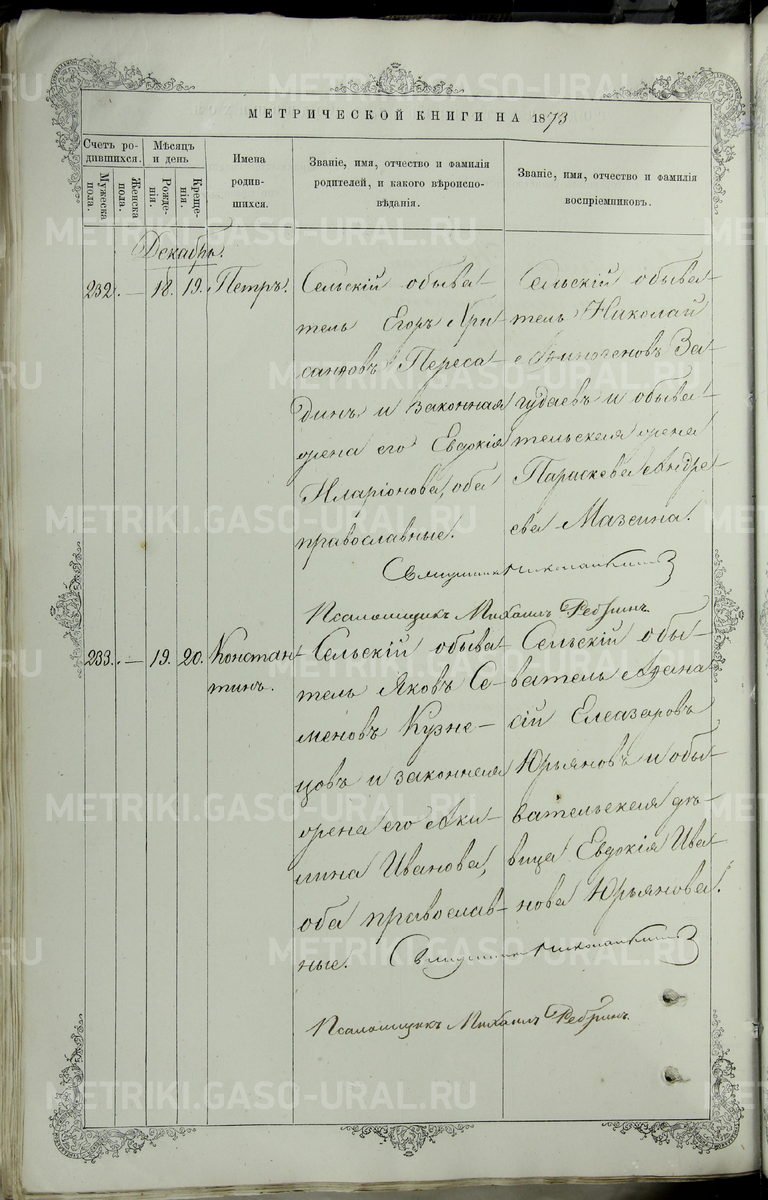 METRIKI.GASO-URAL.RU
МЕТРИЧЕСКОЙ КНИГИ НА 1873
Счетъ ро-
дившихся.
Мужеска
пола.
Женска
пола.
Мѣсяцъ
и день
Рожде-
нія.
Креще-
нія.
Имена
родив-
шихся.
Званіе, имя, отчество и фамилія
родителей, и какого вѣроиспо-
вѣданія.
Званіе, имя, отчество и фамилія
воспріемниковъ.
Декабрь.
232. — 18. 19. Петръ.
Сельскій обыва-
тель Егоръ Хри
санѳовъ Переса-
динъ и законная
жена его Евдокія
Иларіонова, оба
православные.
Сельскій обыва-
тель Николай
Финогеновъ За-
гудаевъ и обыва-
тельская жена
Параскева Андре-
ева Мазеина.
Священникъ
Псаломщикъ Михаилъ Ребринъ
233. — 19. 20. Констан
тинъ.
Сельскій обыва-
тель Яковъ Се-
меновъ Кузне-
цовъ и законная
жена его Аки-
лина Иванова,
оба православ-
ные.
Сельскій обы-
ватель Афана
сій Елеазаровъ
Юрьяновъ и обы-
вательская дѣ-
вица Евдокія Ива-
нова Юрьянова.
Священникъ
Псаломщикъ Михаилъ Ребринъ.